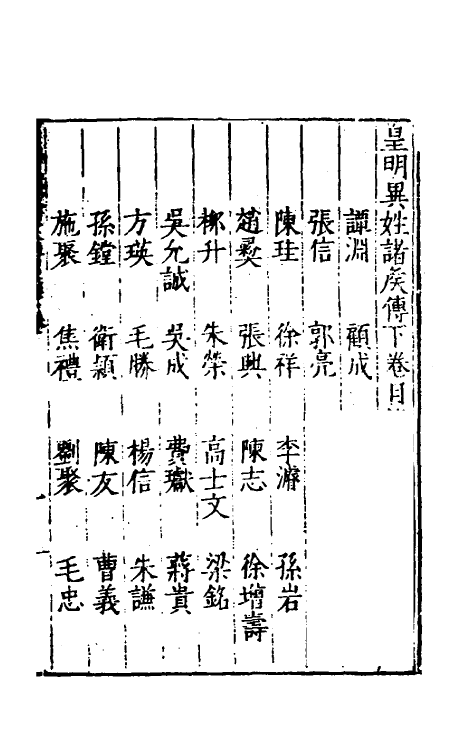 皇明異姓諸矦傳下卷目
譚淵 顧成
張信 郭亮
陳珪 徐祥 李濬 孫岩
趙彝 張興 陳志 徐增壽
栁升 朱榮 高士文 梁銘
吳允誠 吳成 費瓛 蔣貴
方瑛 毛勝 楊信 朱謙
孫鏜 衛頴 陳友 曹義
施聚 焦禮 劉聚 毛忠